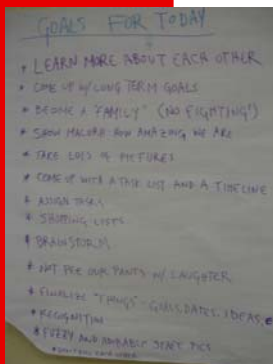 GOALS FOR TODAY
* LEARN MORE ABOUT EACH OTHER
* COME UP W/ LONG TERM GOALS
* BECOME A "FAMILY" (NO FIGHTING!)
* SHOW MALORIE HOW AMAZING WE ARE
* TAKE LOTS OF PICTURES
* COME UP WITH A TASK LIST AND A TIMELINE
* ASSIGN TASKS
* SHOPPING LISTS
* BRAINSTORM
* NOT PEE OUR PANTS W/ LAUGHTER
* FINALIZE "THINGS" - GOALS, DATES, IDEAS
* RECOGNITION
* FURRY AND ADORABLE STAFF PICS